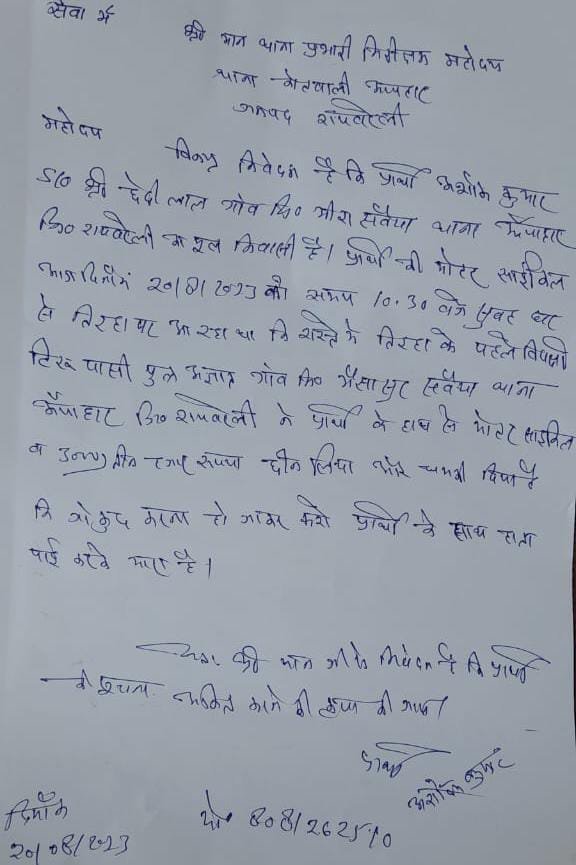 सेवा में
श्री मान थाना प्रभारी निरीक्षक महोदय
थाना कोतवाली ऊँचाहार
जनपद रायबरेली
महोदय
विनम्र निवेदन है कि प्रार्थी अशोक कुमार
S/O श्री छेदी लाल गाँव पो० मीरा सवैया थाना ऊँचाहार
जि० रायबरेली का मूल निवासी है। प्रार्थी की मोटर साइकिल
आज दिनाँक 20/8/2023 को समय 10.30 बजे सुबह घर
से तिराहा पर आ रहा था कि रास्ते में तिराहा के पहले विपक्षी
पासी पुत्र अज्ञात गाँव सवैया थाना
ऊँचाहार जि० रायबरेली ने प्रार्थी के हाथ से मोटर साइकिल
व तीन हजार रूपया छीन लिया और धमकी दिया है
कि जो कुछ करना हो जाकर करो प्रार्थी के साथ हाथा
पाई करके मारा है।
अतः श्री मान जी से निवेदन है कि प्रार्थी
की सूचना अंकित करने की कृपा की जाय।
प्रार्थी
अशोक कुमार
दिनाँक
20/08/2023
मो०